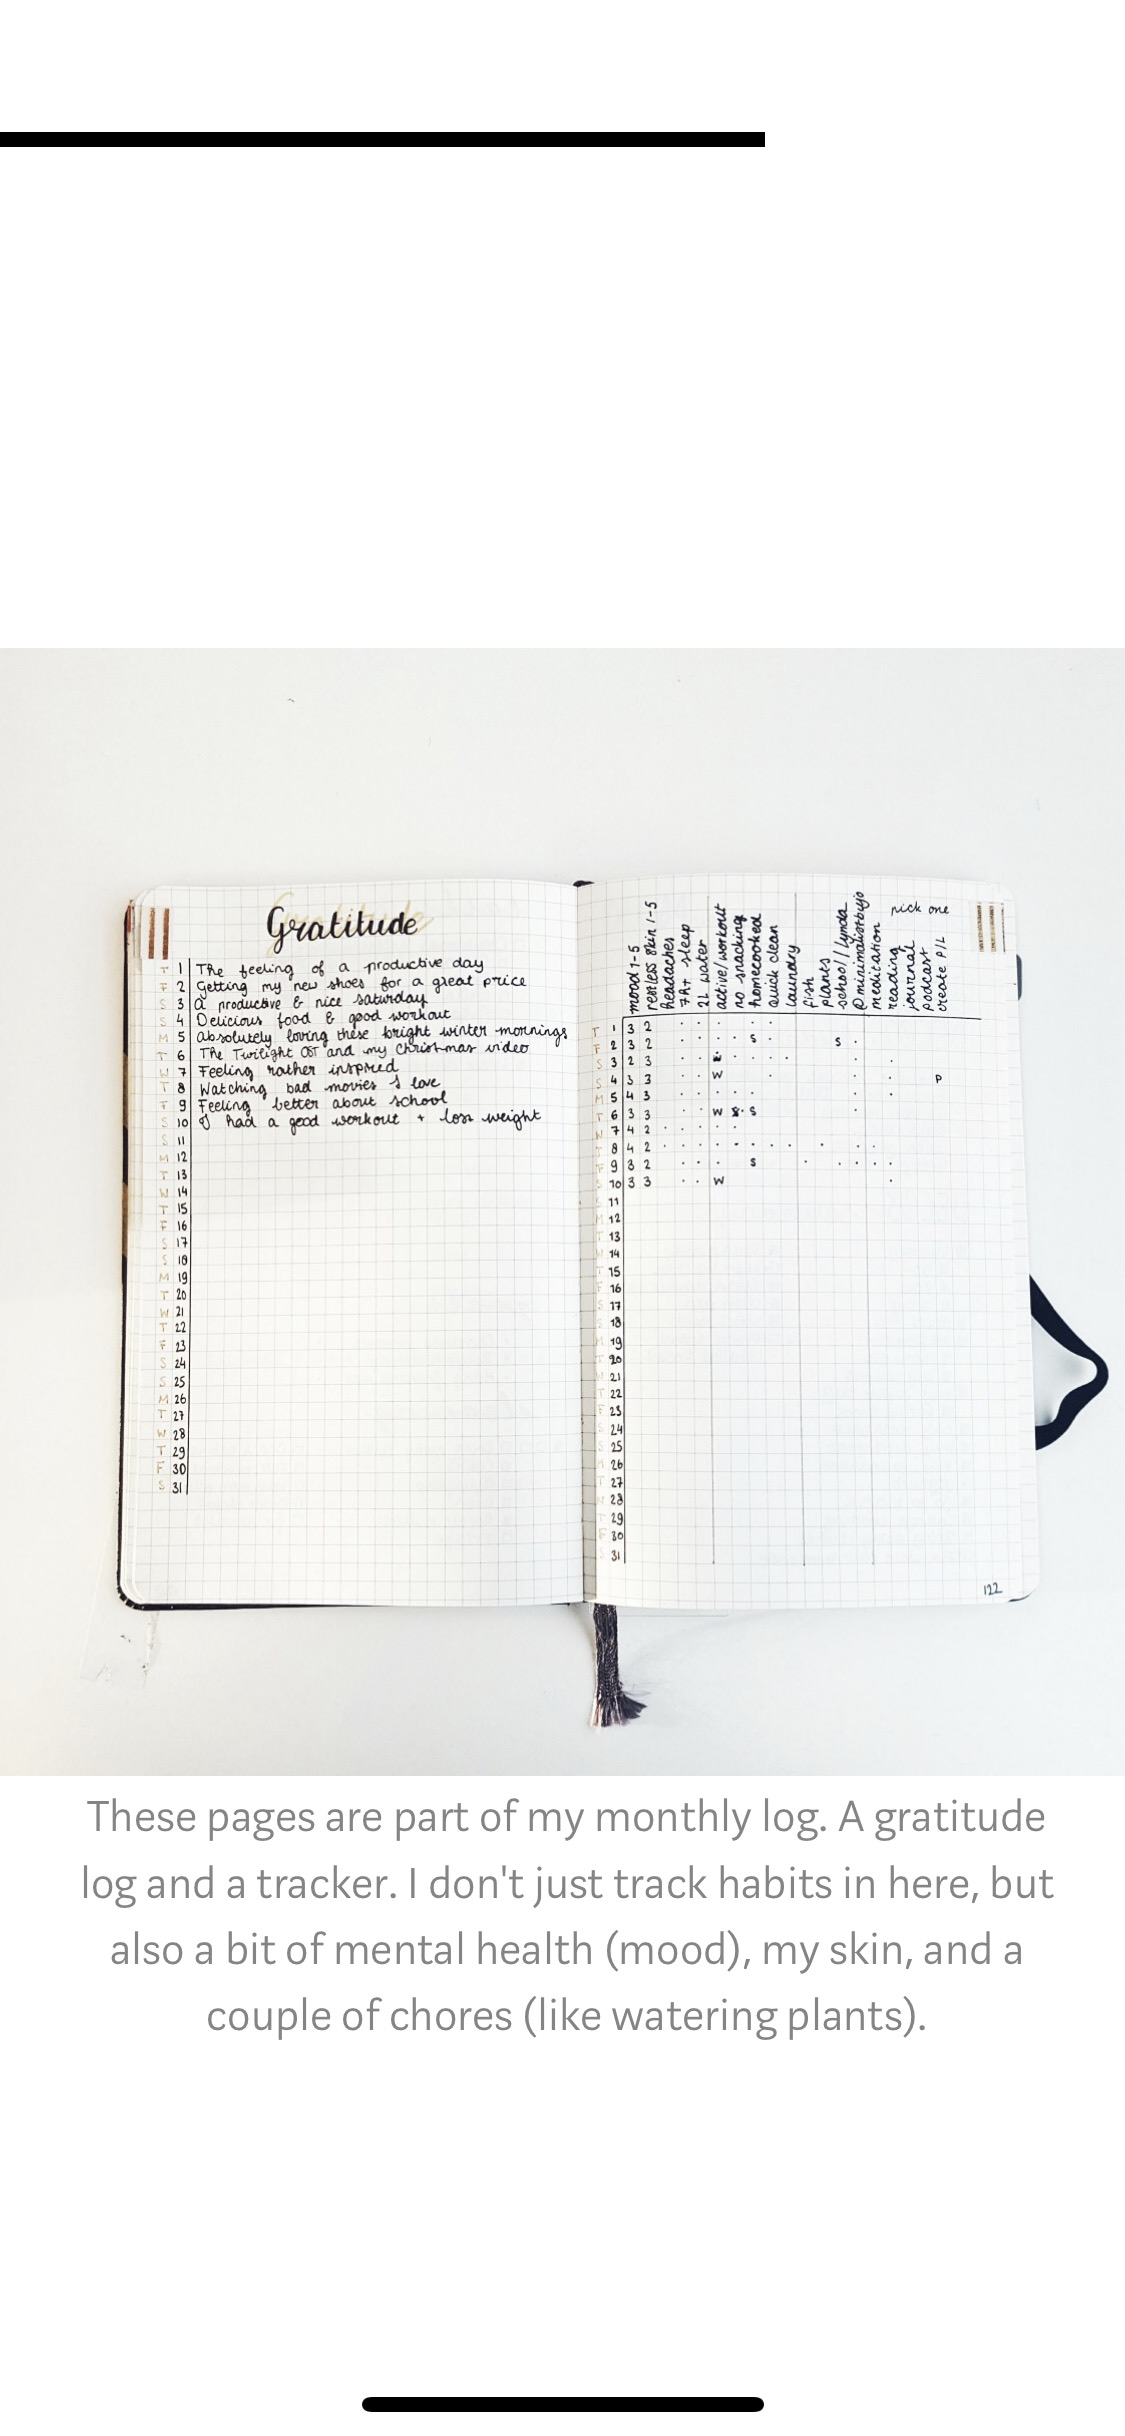 Gratitude
T 1 The feeling of a productive day
F 2 Getting my new shoes for a great price
S 3 A productive & nice saturday
S 4 Delicious food & good workout
M 5 Absolutely loving these bright winter mornings
T 6 The Twilight OST and my Christmas video
W 7 Feeling rather inspired
T 8 Watching bad movies I love
F 9 Feeling better about school
S 10 I had a good workout + loss weight
S 11
M 12
T 13
W 14
T 15
F 16
S 17
S 18
M 19
T 20
W 21
T 22
F 23
S 24
S 25
M 26
T 27
W 28
T 29
F 30
S 31
mood 1-5
restless skin 1-5
headaches
7h+ sleep
2L water
active/workout
no snacking
homecooked
quick clean
laundry
fish
plants
school//lynda
@minimalistbujo
meditation
pick one
reading
journal
podcast
create P/L
T 1 3 2
F 2 3 2 S S
S 3 2 3
S 4 3 3 W P
M 5 4 3
T 6 3 3 W S
W 7 4 2
T 8 4 2
F 9 3 2 S
S 10 3 3 W
11
M 12
T 13
W 14
T 15
F 16
S 17
S 18
M 19
T 20
W 21
T 22
F 23
S 24
S 25
M 26
T 27
W 28
T 29
F 30
S 31
122
These pages are part of my monthly log. A gratitude
log and a tracker. I don't just track habits in here, but
also a bit of mental health (mood), my skin, and a
couple of chores (like watering plants).